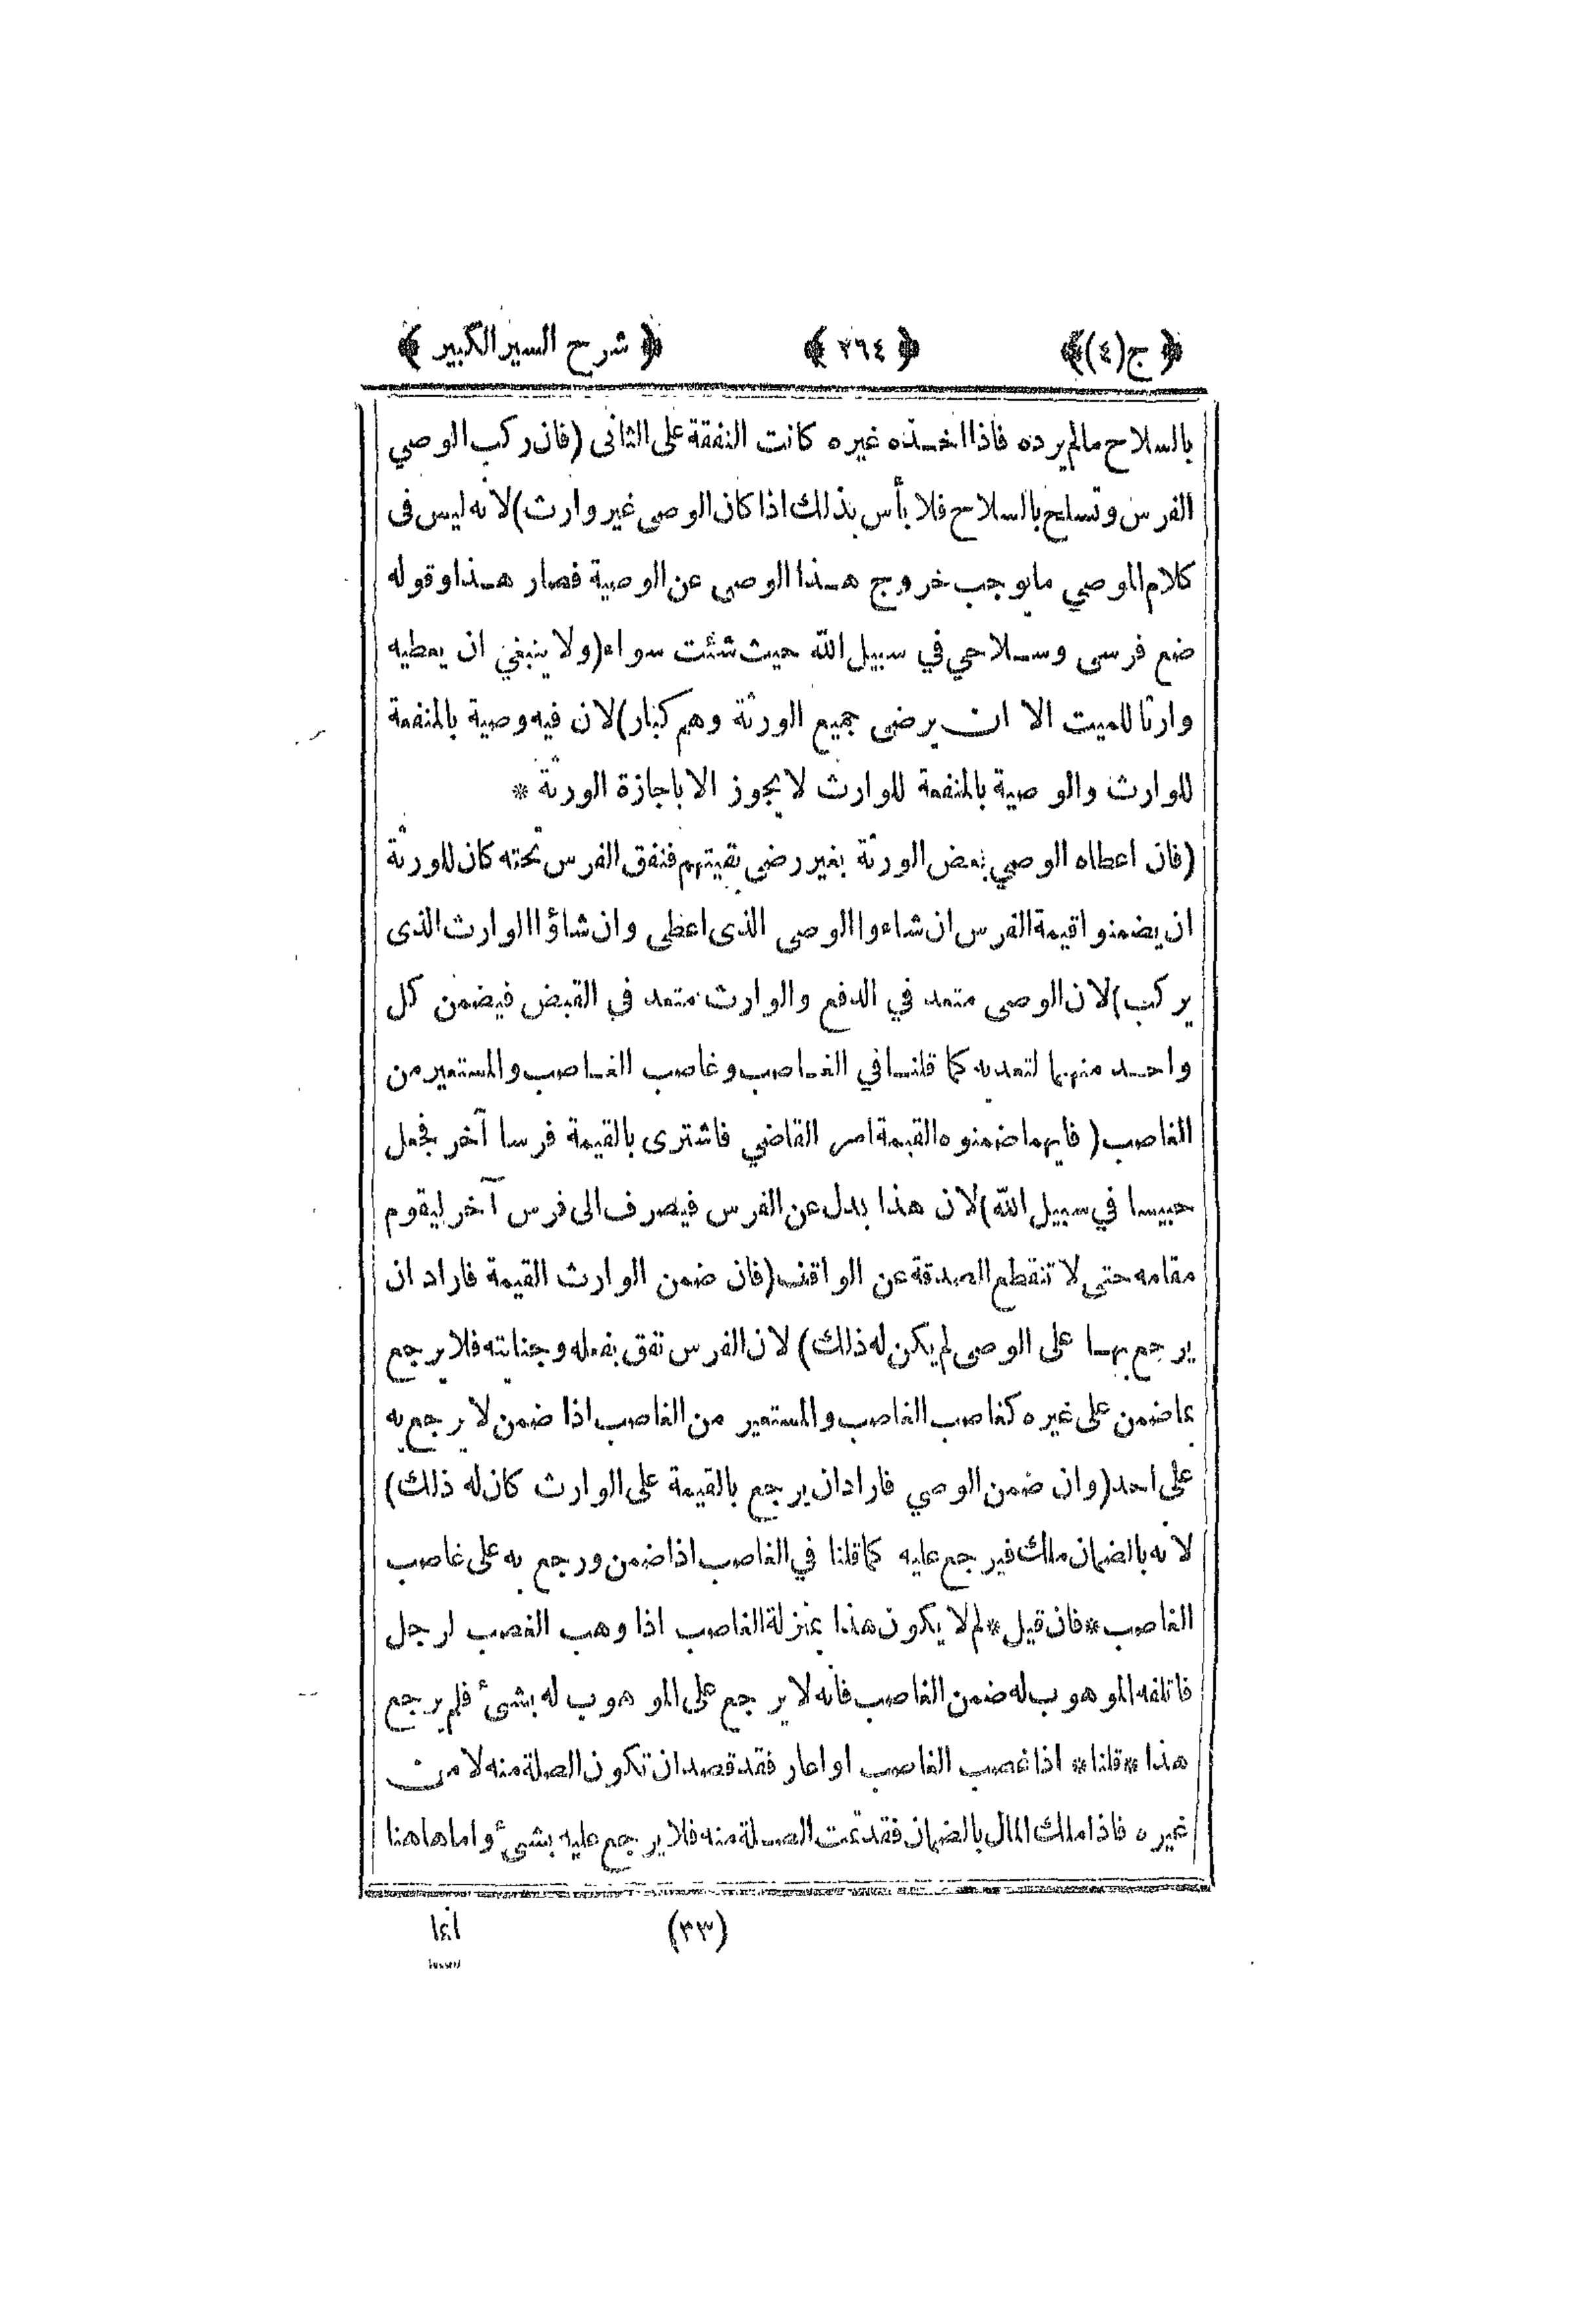 ﴿ ج(٤) ﴾ ﴿ ٢٦٤ ﴾ ﴿ شرح السير الكبير ﴾
بالسلاح مالم يرده فاذا اخذه غيره كانت النفقة على الثانى (فان ركب الوصي
الفرس وتسلح بالسلاح فلا بأس بذلك اذا كان الوصى غير وارث) لانه ليس فى
كلام الموصي مايوجب خروج هذا الوصى عن الوصية فصار هذا وقوله
ضع فرسى وسلاحي في سبيل الله حيث شئت سواء (ولا ينبغي ان يعطيه
وارثا للميت الا ان يرضى جميع الورثة وهم كبار) لان فيه وصية بالمنفعة
للوارث والوصية بالمنفعة للوارث لا يجوز الا باجازة الورثة *
(فان اعطاه الوصي بعض الورثة بغير رضى بقيتهم فنفق الفرس تحته كان للورثة
ان يضمنوا قيمة الفرس ان شاءوا الوصى الذى اعطى وان شاؤا الوارث الذى
يركب) لان الوصى متعد في الدفع والوارث متعد في القبض فيضمن كل
واحد منهما لتعديه كما قلنا في الغاصب وغاصب الغاصب والمستعير من
الغاصب (فايهما ضمنوه القيمة امر القاضي فاشترى بالقيمة فرسا آخر فجعل
حبيسا في سبيل الله) لان هذا بدل عن الفرس فيصرف الى فرس آخر ليقوم
مقامه حتى لا تنقطع الصدقة عن الواقف (فان ضمن الوارث القيمة فاراد ان
يرجع بها على الوصى لم يكن له ذلك) لان الفرس نفق بفعله وجنايته فلا يرجع
بماضمن على غيره كغاصب الغاصب والمستعير من الغاصب اذا ضمن لا يرجع به
على احد (وان ضمن الوصي فاراد ان يرجع بالقيمة على الوارث كان له ذلك)
لانه بالضمان ملك فيرجع عليه كما قلنا في الغاصب اذا ضمن ورجع به على غاصب
الغاصب * فان قيل * لم لا يكون هذا بمنزلة الغاصب اذا وهب الغصب لرجل
فاتلفه الموهوب له ضمن الغاصب فانه لا يرجع على الموهوب له بشئ فلم يرجع
هذا * قلنا * اذا غصب الغاصب او اعار فقد قصد ان تكون الصلة منه لا من
غيره فاذا ملك المال بالضمان فقد تمت الصلة منه فلا يرجع عليه بشئ واما هاهنا
(٣٣) انما